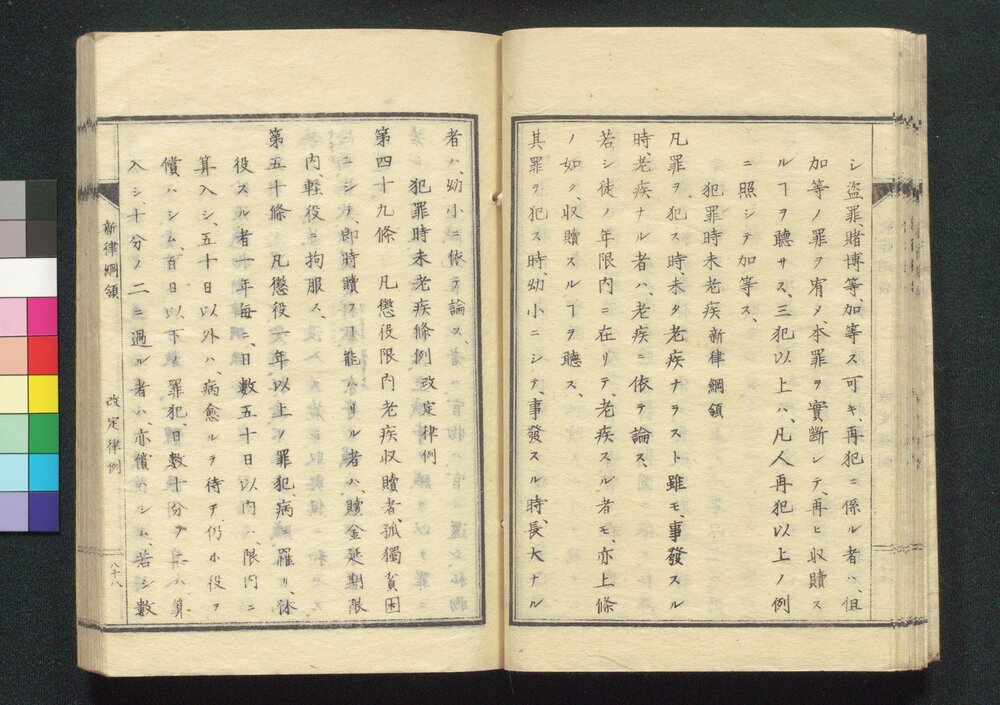 シ盗罪賭博等、加等ス可キ再犯ニ係ル者ハ、但
加等ノ罪ヲ宥メ本罪ヲ實断シテ、再ヒ収贖ス
ルヿヲ聴サス、三犯以上ハ、凡人再犯以上ノ例
ニ照シテ加等ス、
犯罪時未老疾新律綱領
凡罪ヲ犯ス時、未タ老疾ナラスト雖モ、事發スル
時、老疾ナル者ハ、老疾ニ依テ論ス、
若シ徒ノ年限内ニ在リテ、老疾スル者モ、亦上條
ノ如ク、収贖スルヿヲ聴ス、
其罪ヲ犯ス時、幼小ニシテ、事發スル時、長大ナル
者ハ、幼小ニ依テ論ス、
犯罪時未老疾條例改定律例
第四十九條 凡懲役限内老疾収贖者、孤獨貧困
ニシテ、即時贖スル能ハサル者ハ、贖金延期限
内、軽役ニ拘服ス、
第五十條 凡懲役一年以上ノ罪犯、病ニ罹リ、休
役スル者、一年毎ニ、日數五十日以内ハ、限内ニ
算入シ、五十日以外ハ、病愈ルヲ待チ、仍ホ役ヲ
償ハシム、百日以下ノ罪犯、日數十分ノ一ハ、算
入シ、十分ノ二ニ過ル者ハ、亦償ハシム、若シ數
新律綱領 改定律例 八十八